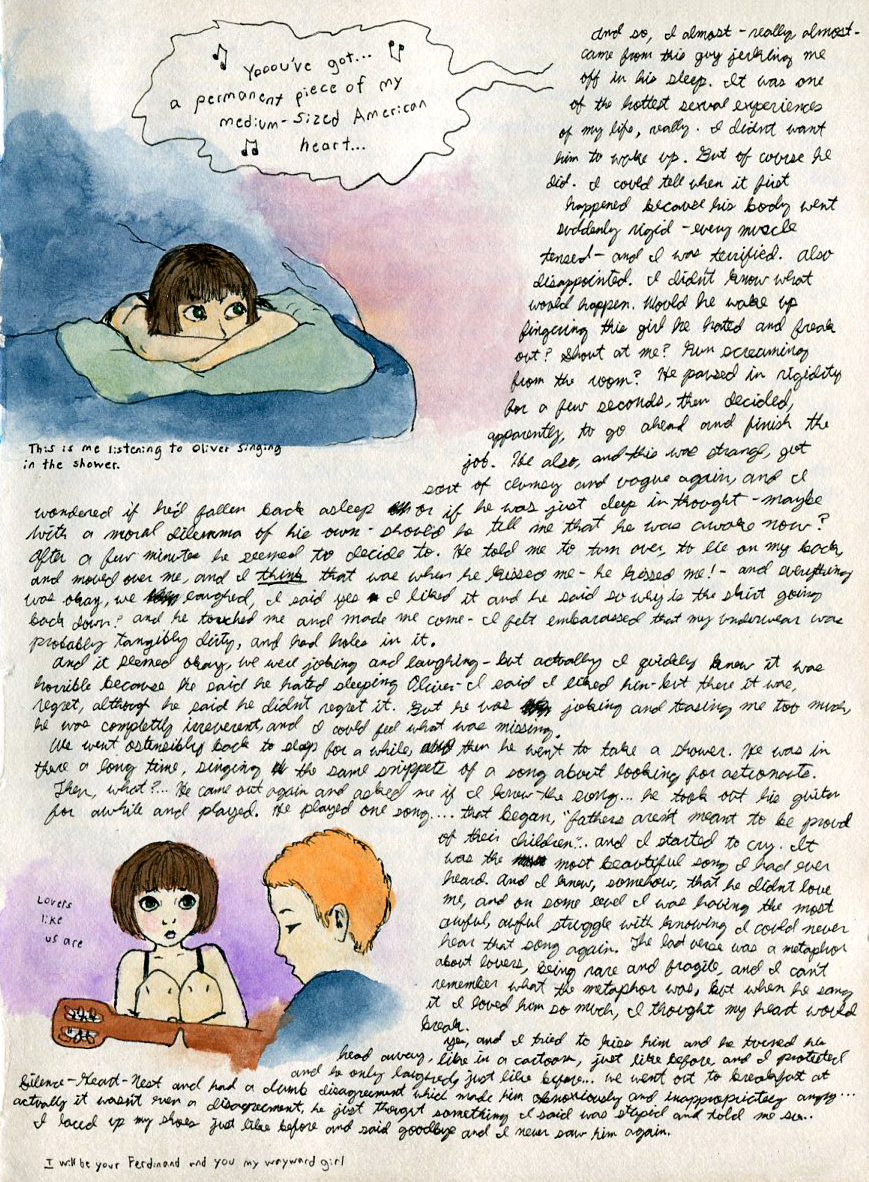 Yooou've got...
a permanent piece of my
medium-sized American
heart...
This is me listening to Oliver singing
in the shower.
And so, I almost - really almost -
came from this guy jerking me
off in his sleep. It was one
of the hottest sexual experiences
of my life, really. I didn't want
him to wake up. But of course he
did. I could tell when it first
happened because his body went
suddenly rigid - every muscle
tensed - and I was terrified. Also
disappointed. I didn't know what
would happen. Would he wake up
fingering this girl he hated and freak
out? Shout at me? Run screaming
from the room? He paused in rigidity
for a few seconds, then decided,
apparently, to go ahead and finish the
job. He also, and this was strange, got
sort of clumsy and vague again, and I
wondered if he'd fallen back asleep or if he was just deep in thought - maybe
with a moral dilemma of his own - should he tell me that he was awake now?
After a few minutes he seemed to decide to. He told me to turn over, to lie on my back,
and moved over me, and I think that was when he kissed me - he kissed me! - and everything
was okay, we laughed, I said yes I liked it and he said so why is the shirt going
back down? and he touched me and made me come - I felt embarassed that my underwear was
probably tangibly dirty, and had holes in it.
And it seemed okay, we were joking and laughing - but actually I quickly knew it was
horrible because he said he hated sleeping Oliver - I said I liked him - but there it was,
regret, although he said he didn't regret it. But he was joking and teasing me too much,
he was completely irreverent, and I could feel what was missing.
We went ostensibly back to sleep for a while, and then he went to take a shower. He was in
there a long time, singing the same snippets of a song about looking for astronauts.
Then, what?... He came out again and asked me if I knew the song... he took out his guitar
for awhile and played. He played one song.... that began, "fathers aren't meant to be proud
of their children"... and I started to cry. It
was the most beautiful song I had ever
heard. And I knew, somehow, that he didn't love
me, and on some level I was having the most
awful, awful struggle with knowing I could never
hear that song again. The last verse was a metaphor
about lovers, being rare and fragile, and I can't
remember what the metaphor was, but when he sang
it I loved him so much, I thought my heart would
break.
Lovers
like
us are
Yes, and I tried to kiss him and he turned his
head away, like in a cartoon, just like before and I protested
and he only laughed, just like before... we went out to breakfast at
Silence-Heart-Nest and had a dumb disagreement which made him obnoxiously and inappropriately angry...
actually it wasn't even a disagreement, he just thought something I said was stupid and told me so..
I laced up my shoes just like before and said goodbye and I never saw him again.
I will be your Ferdinand and you my wayward girl